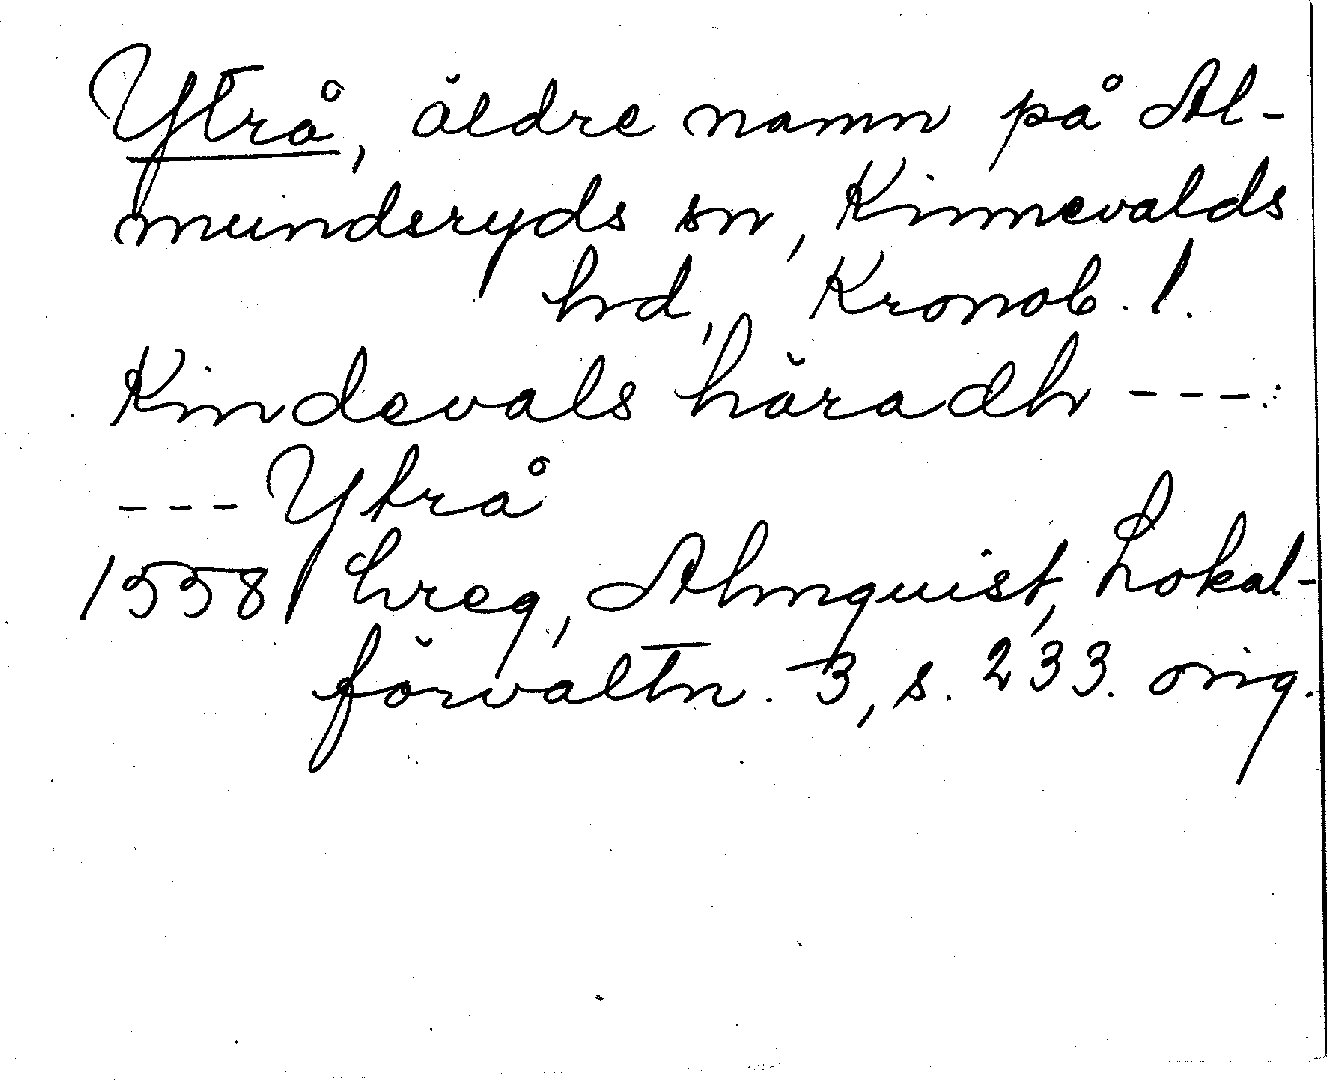 Ytrå, äldre namn på Al-
munderyds sn, Kinnevalds
hd, Kronob. l.
Kindevals häradh ---:
--- Ytrå
1558 hreg, Almquist, Lokal-
förvaltn. 3, s. 233. orig.